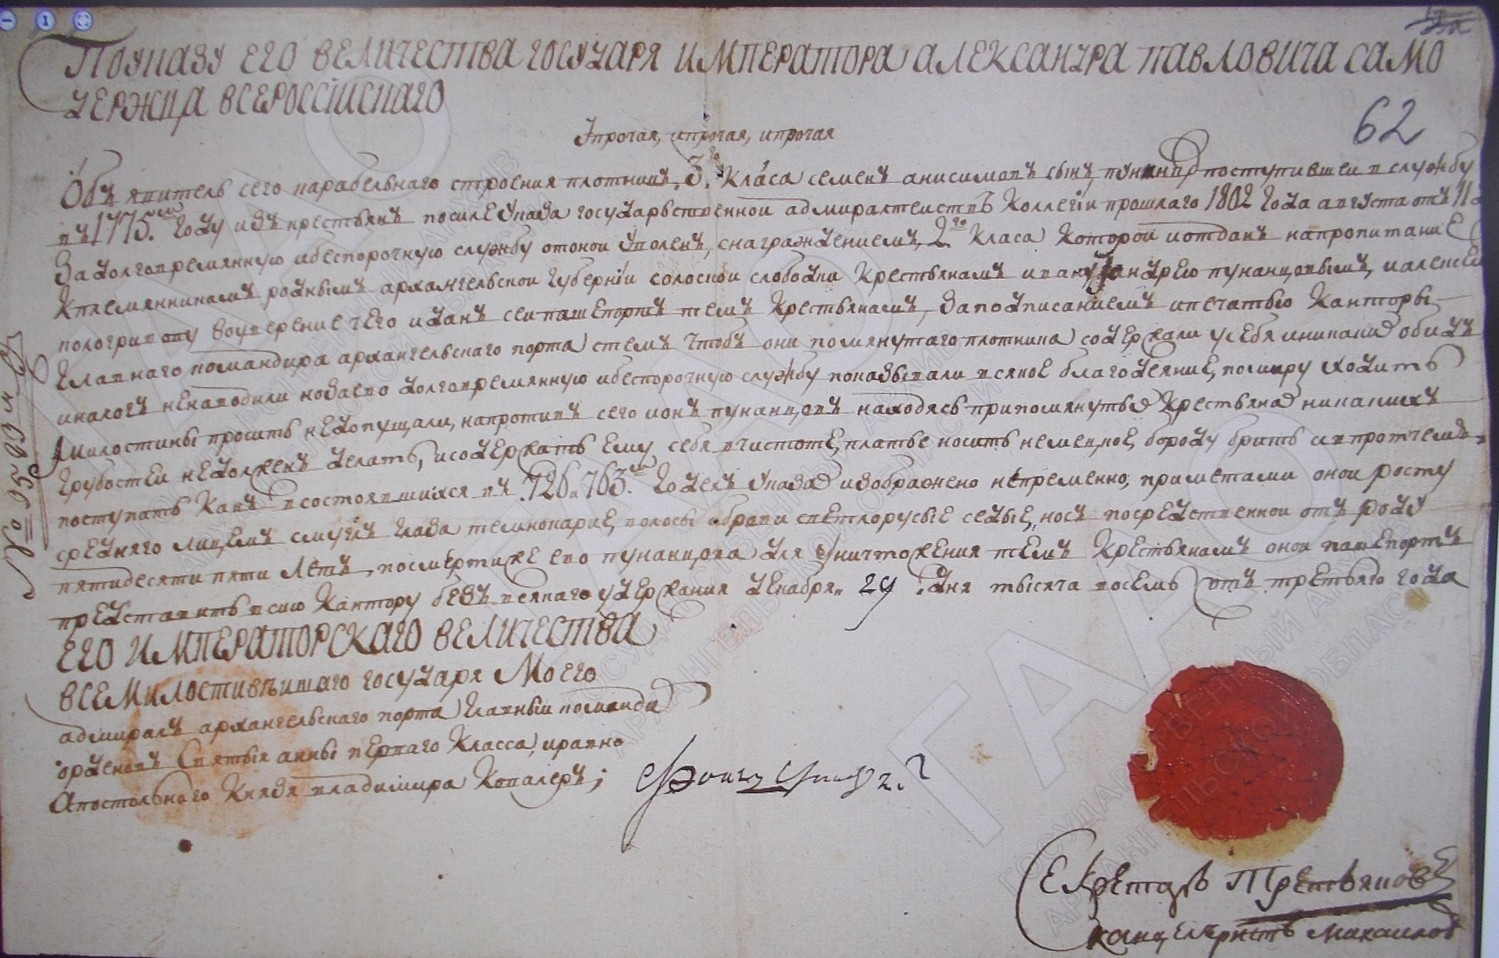 62
По указу его величества государя императора александра павловича само
держца всероссiискаго
Iпрочая, ипрочая, ипрочая
Объявитель сего карабельнаго строения плотникъ, 3го класа семенъ анисимовъ сынъ, поступившеи вслужбу
въ 1775.мъ году изъ крестьянъ посиле указа государьственнои адмиралтеиствъ Коллегiи прошлаго 1802 года августа отъ 11
За долговремянную ибеспорочную службу отонои уволенъ, снаграждениемъ 2го класа Которои иотданъ напропитание
Кплемянникамъ роднымъ архангельскои Губернiи слободки Крестьянамъ андрею куканцовымъ,
вовзверение чего иданъ сеи пашепортъ темъ Крестьянамъ, Заподписаниемъ ипечатью Канторы
Главнаго командира архангельскаго порта стемъ Чтобъ они помянутаго плотника содержали усебя иникакид обидъ
иналогъ ненаводили нозаево долговремянную ибеспорочную службу показывали всякое благодеяние, помиру ходить
Милостины просить недопущали, напротивъ сего ионъ куканцовъ находясь припомянутыд Крестьянад никакихъ
Грубостеи недолженъ делать, исодержать ему себя вчистоте, платье носить немецкое, бороду брить ивпротчемъ
поступать Какъ всостоявшихся въ 726 и 763.мъ Годехъ указад изображено непременно; приметами онои росту
средняго лицемъ смуглъ Глаза темнокарие, волосы иброви светлорусые седые, носъ посредственнои отъ роду
пятидесяти пяти Летъ, посмертиже ево куканцова для уничтожения темъ Крестьянамъ онои пашепортъ
представить всию Кантору безъ всякаго удержания декабря 24 дня тысяча восемь сотъ третьяго года
ЕГО ИМПЕРАТОРСКАГО ВЕЛИЧЕСТВА
ВСЕМИЛОСТИВѣишаго государя Моего
адмиралъ архангельскаго порта Главныи команди
орденовъ Святыя анны первого Класса, иравно
Апостольнаго Князя владимира Ковалеръ;
Секретарь Третьяковъ
Канцеляристъ Михаиловъ